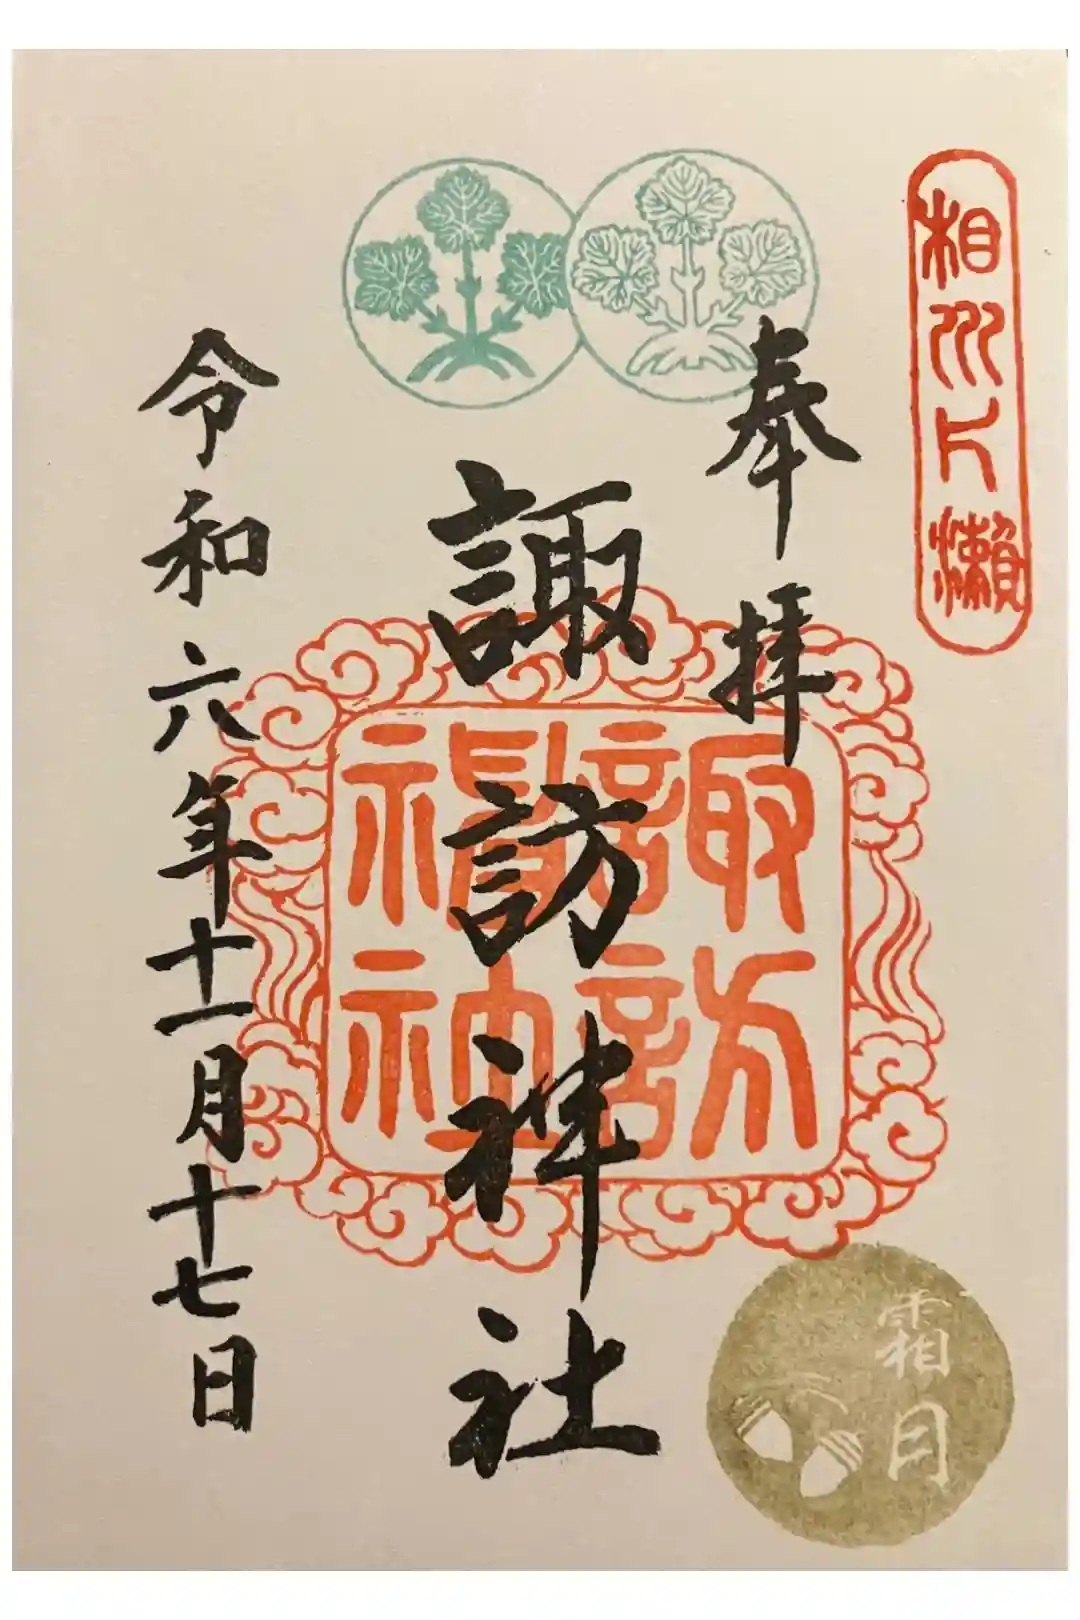 相州片瀬
奉拝
諏訪神社
諏訪神社
令和六年十一月十七日
霜月